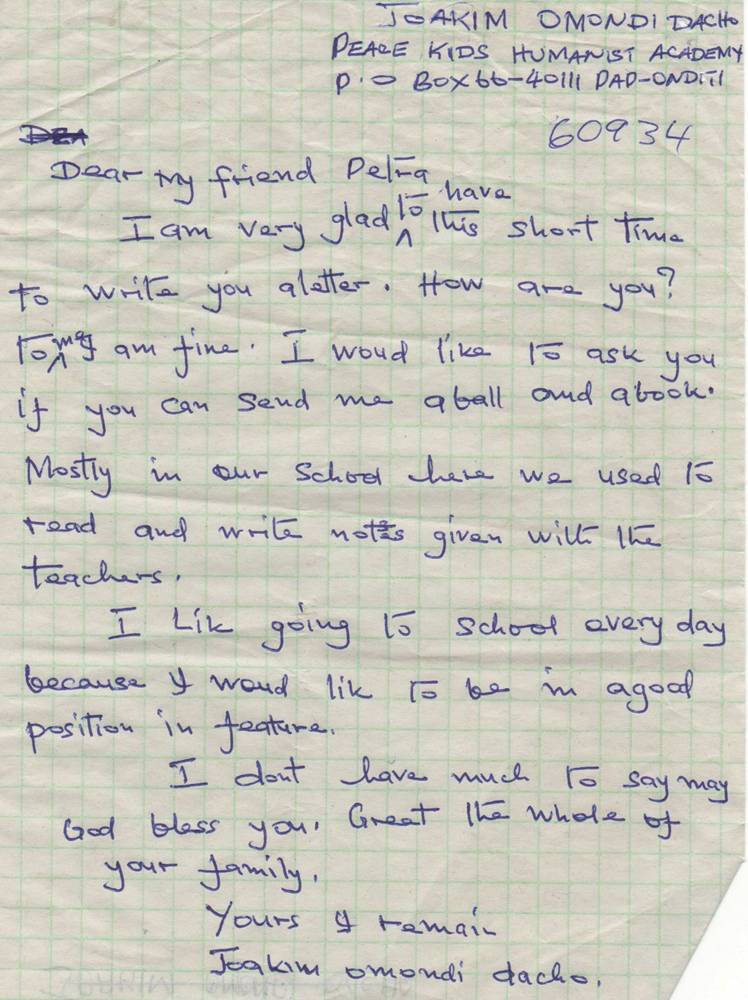 JOAKIM OMONDI DACHO
PEACE KIDS HUMANIST ACADEMY
P.O BOX 66-40111 PAP-ONDITI
60934
Dear my friend Petra
I am very glad to have this short time
to write you aletter. How are you?
to me I am fine. I woud like to ask you
if you can send me aball and abook.
Mostly in our school here we used to
read and write notes given with the
teachers.
I Lik going to school every day
because I woud lik to be in agood
position in feature.
I dont have much to say may
God bless you. Great the whole of
your family.
Yours I remain
Joakim omondi dacho.